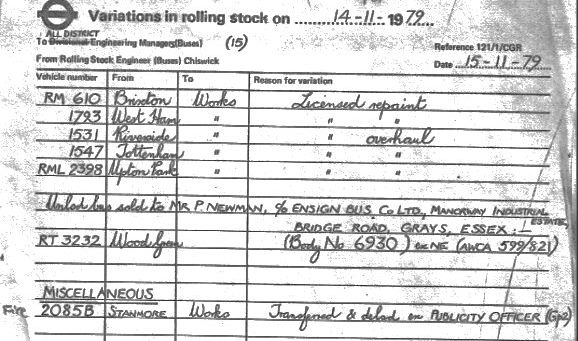 Variations in rolling stock on 14-11-1979
ALL DISTRICT
To Divisional Engineering Managers(Buses) (15)
Reference 121/1/CGR
From Rolling Stock Engineer (Buses) Chiswick
Date 15-11-79
Vehicle number From To Reason for variation
RM 610 Brixton Works Licensed repaint
1793 West Ham " " "
1531 Riverside " " overhaul
1547 Tottenham " " "
RML 2398 Upton Park " " "
bus sold to MR P. NEWMAN, c/o ENSIGN BUS Co LTD, MANORWAY INDUSTRIAL ESTATE,
BRIDGE ROAD, GRAYS, ESSEX :-
RT 3232 Wood Green (Body No 6930) ex NE (AWCA 599/821)
MISCELLANEOUS
2085B STANMORE Works Transferred & on PUBLICITY OFFICER (Gp2)